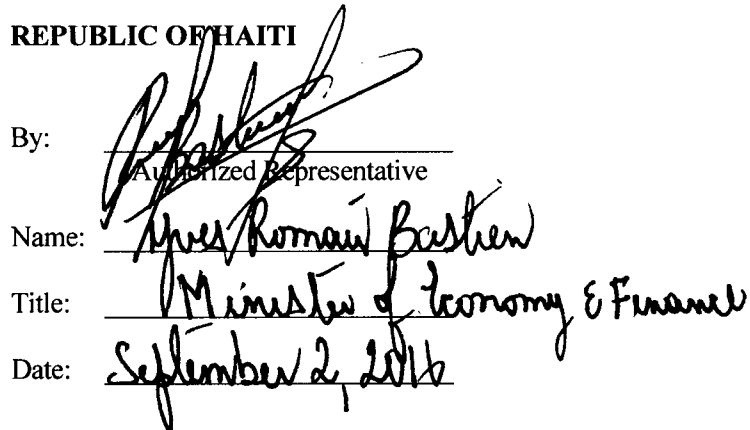 REPUBLIC OF HAITI
By:
Authorized Representative
Name: Yves Romain Bastien
Title: Minister of Economy & Finance
Date: September 2, 2016